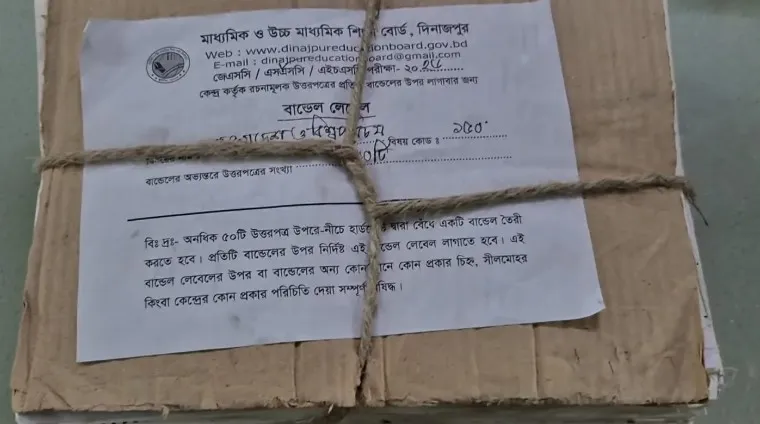 মাধ্যমিক ও উচ্চ মাধ্যমিক শিক্ষা বোর্ড, দিনাজপুর
Web : www.dinajpureducationboard.gov.bd
E-mail : dinajpureducationboard@gmail.com
জেএসসি / এসএসসি / এইচএসসি পরীক্ষা- ২০
কেন্দ্র কর্তৃক রচনামূলক উত্তরপত্রের প্রতি বান্ডেলের উপর লাগাবার জন্য
বান্ডেল লেবেল
ও বিশ্বপরিচয় বিষয় কোড : ১৫০
৫০টি
বান্ডেলের অভ্যন্তরে উত্তরপত্রের সংখ্যা
বিঃ দ্রঃ- অনধিক ৫০টি উত্তরপত্র উপরে-নীচে দ্বারা বেঁধে একটি বান্ডেল তৈরী
করতে হবে। প্রতিটি বান্ডেলের উপর নির্দিষ্ট এই বান্ডেল লেবেল লাগাতে হবে। এই
বান্ডেল লেবেলের উপর বা বান্ডেলের অন্য কোন কোন প্রকার চিহ্ন, সীলমোহর
কিংবা কেন্দ্রের কোন প্রকার পরিচিতি দেয়া সম্পূর্ণ নিষিদ্ধ।